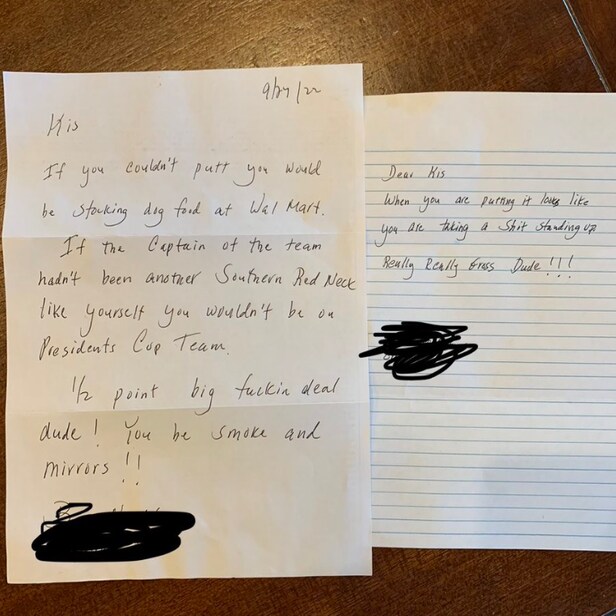 9/27/22
Kis
If you couldn't putt you would
be stocking dog food at Wal Mart.
If the Captain of the team
hadn't been another Southern Red Neck
like yourself you wouldn't be on
Presidents Cup Team.
1/2 point big fuckin deal
dude! You be smoke and
mirrors!!
Dear Kis
When you are putting it looks like
you are taking a Shit standing up
Really Really Gross Dude!!!